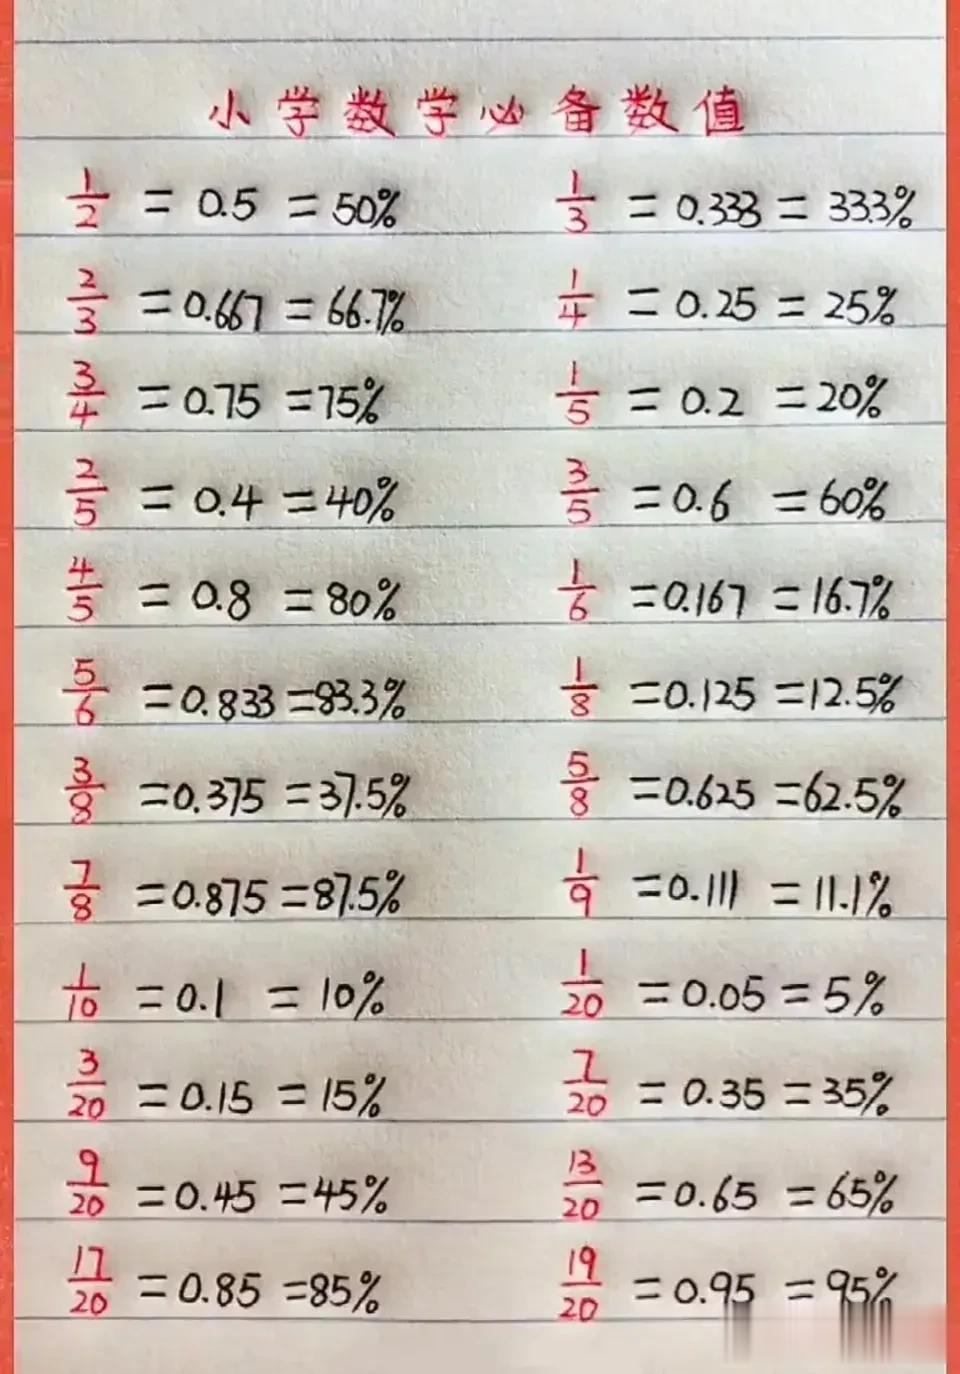 小学数学必备数值
1/2 = 0.5 = 50% 1/3 = 0.333 = 33.3%
2/3 = 0.667 = 66.7% 1/4 = 0.25 = 25%
3/4 = 0.75 = 75% 1/5 = 0.2 = 20%
2/5 = 0.4 = 40% 3/5 = 0.6 = 60%
4/5 = 0.8 = 80% 1/6 = 0.167 = 16.7%
5/6 = 0.833 = 83.3% 1/8 = 0.125 = 12.5%
3/8 = 0.375 = 37.5% 5/8 = 0.625 = 62.5%
7/8 = 0.875 = 87.5% 1/9 = 0.111 = 11.1%
1/10 = 0.1 = 10% 1/20 = 0.05 = 5%
3/20 = 0.15 = 15% 7/20 = 0.35 = 35%
9/20 = 0.45 = 45% 13/20 = 0.65 = 65%
17/20 = 0.85 = 85% 19/20 = 0.95 = 95%